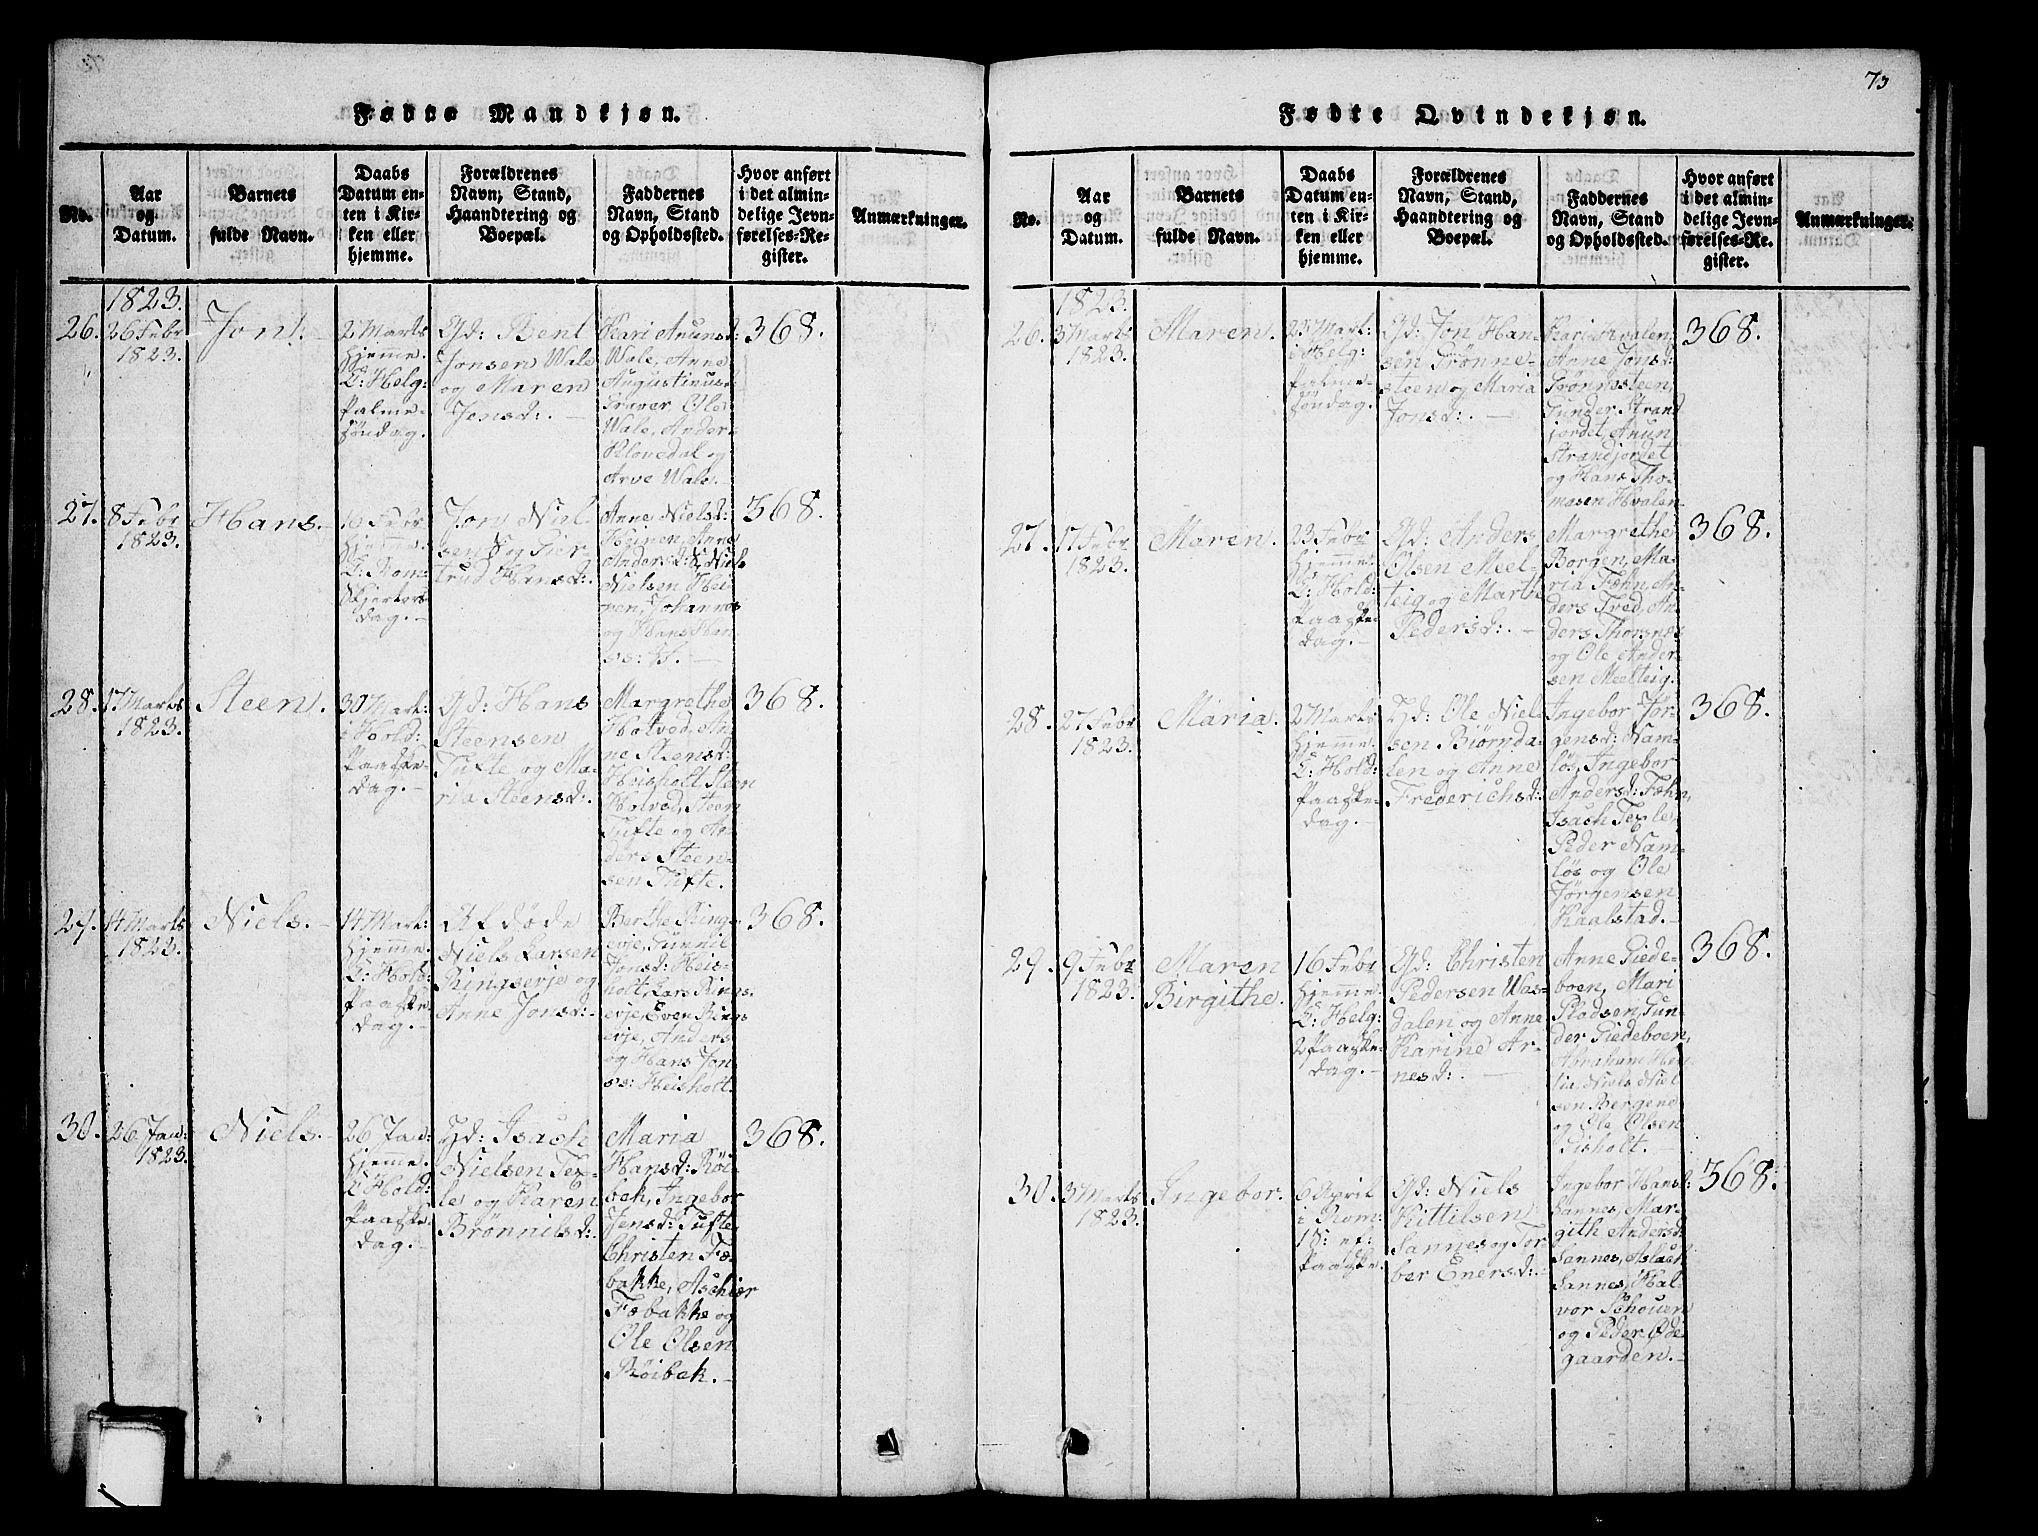 73
Fødte Mandkjøn.
No.
Aar
og
Datum.
Barnets
fulde Navn.
Daabs
Datum en-
ten i Kir-
ken eller
hjemme.
Forældrenes
Navn, Stand,
Haandtering og
Boepæl.
Faddernes
Navn, Stand
og Opholdssted.
Hvor anført
i det almin-
delige Jevn-
førelses-Re-
gister.
Anmærkninger.
1823.
26.
26 Febr
1823.
Jon.
2 Marts
hjemme.
C: Helg:
Palme-
søndag.
Gd: Bent
Jonsen Wale
og Maren
Jonsd:
Kari Anunsd:
Wale, Anne
Augustinus:
Traver, Ole
Wale, Ander
Klovedal og
Arve Wale.
368.
27.
8 Febr
1823.
Hans.
16 Febr
hjemme.
C: Rom-
Skjertors-
dag.
Jon Niel
sen S og Gier-
trud Hansd:
Anne Nielsd:
Heinen, Anne
Andersd: S, Niels
Nielsen Hei
nen, Johannes
og Hans Han
ss: H.
368.
28.
17 Marts
1823.
Steen.
30 Mart:
i Hold:
Paaske-
dag.
Gd: Hans
Steensen
Tufte og Ma-
ria Steensd:
Margrethe
Holved, An-
ne Steensd:
Heisholt, Steen
Holved, Steen
Tufte og An-
ders Steen-
sen Tufte.
368.
29.
14 Marts
1823.
Niels.
14 Mart:
hjemme.
C: Hold:
Paaske-
dag.
Afdøde
Niels Larsen
Ringserje og
Anne Jonsd:
Berthe Rings-
erje, Gunnil
Jonsd: Heis-
holt, Lars Rings-
erje, Even Rings
erje, Anders
og Hans Jon
ss: Heisholt.
368.
30.
26 Jan:
1823.
Niels.
26 Jan:
hjemme.
C: Hold:
Paaske-
dag.
Gd: Isach
Nielsen Tex-
le og Karen
Brønnilsd:
Maria
Hansd: Røi-
bek, Ingebor
Jensd: Tufte
Christen Fæ-
bakke, Aschier
Fæbakke og
Ole Olsen
Røibek.
368.
Fødte Qvindekjøn.
No.
Aar
og
Datum.
Barnets
fulde Navn.
Daabs
Datum en-
ten i Kir-
ken eller
hjemme.
Forældrenes
Navn, Stand,
Haandtering og
Boepæl.
Faddernes
Navn, Stand
og Opholdssted.
Hvor anført
i det almin-
delige Jevn-
førelses-Re-
gister.
Anmærkninger.
1823.
26.
3 Marts
1823.
Maren.
23 Mart:
i Helg:
Palme-
søndag.
Gd: Jon Han-
sen Trønne-
steen og Maria
Jonsd:
Kari Hvalen,
Anne Jonsd:
Trønnesteen,
Gunder Strand
jordet, Anun
Strandjordet
og Hans Tho-
masen Hvalen
368.
27.
17 Febr
1823.
Maren.
23 Febr
hjemme.
C: Hold:
Paaske-
dag.
Gd: Anders
Olsen Meel-
teig og Marthe
Pedersd:
Margrethe
Borgen, Ma-
ria Fæhn, An-
ders Tved, An
ders Thorsnes
og Ole Ander-
sen Meelteig.
368.
28.
27 Febr
1823.
Maria.
2 Marts
hjemme.
C: Hold:
Paaske-
dag.
Gd: Ole Niel-
sen Biørnda-
len og Anne
Frederichsd:
Ingebor Jør-
gensd: Nam-
løs, Ingebor
Andersd: Fæhn,
Isach Texle,
Peder Nam-
løs og Ole
Jørgensen
Kaalstad.
368.
29.
9 Febr
1823.
Maren
Birgithe.
16 Febr
hjemme.
C: Helg:
2 Paaske-
dag.
Gd: Christen
Pedersen Was-
dalen og Anne
Karine Ar-
nesd:
Anne Giede-
boen, Mari
Plodsen, Gun-
der Giedeboen,
Abraham
Niels Niel
sen Bergene
og Ole Olsen
Lisholt.
368.
30.
3 Marts
1823.
Ingebor.
6 April
i Rom:
1 S: ef:
Paaske.
Gd: Niels
Kittilsen
Sannes og Tor
ber Enersd:
Ingebor Hansd:
Sannes, Mar-
gith Andersd:
Sannes, Aslach
Sannes, Hal
vor Schouen
og Peder Øde-
gaarden.
368.